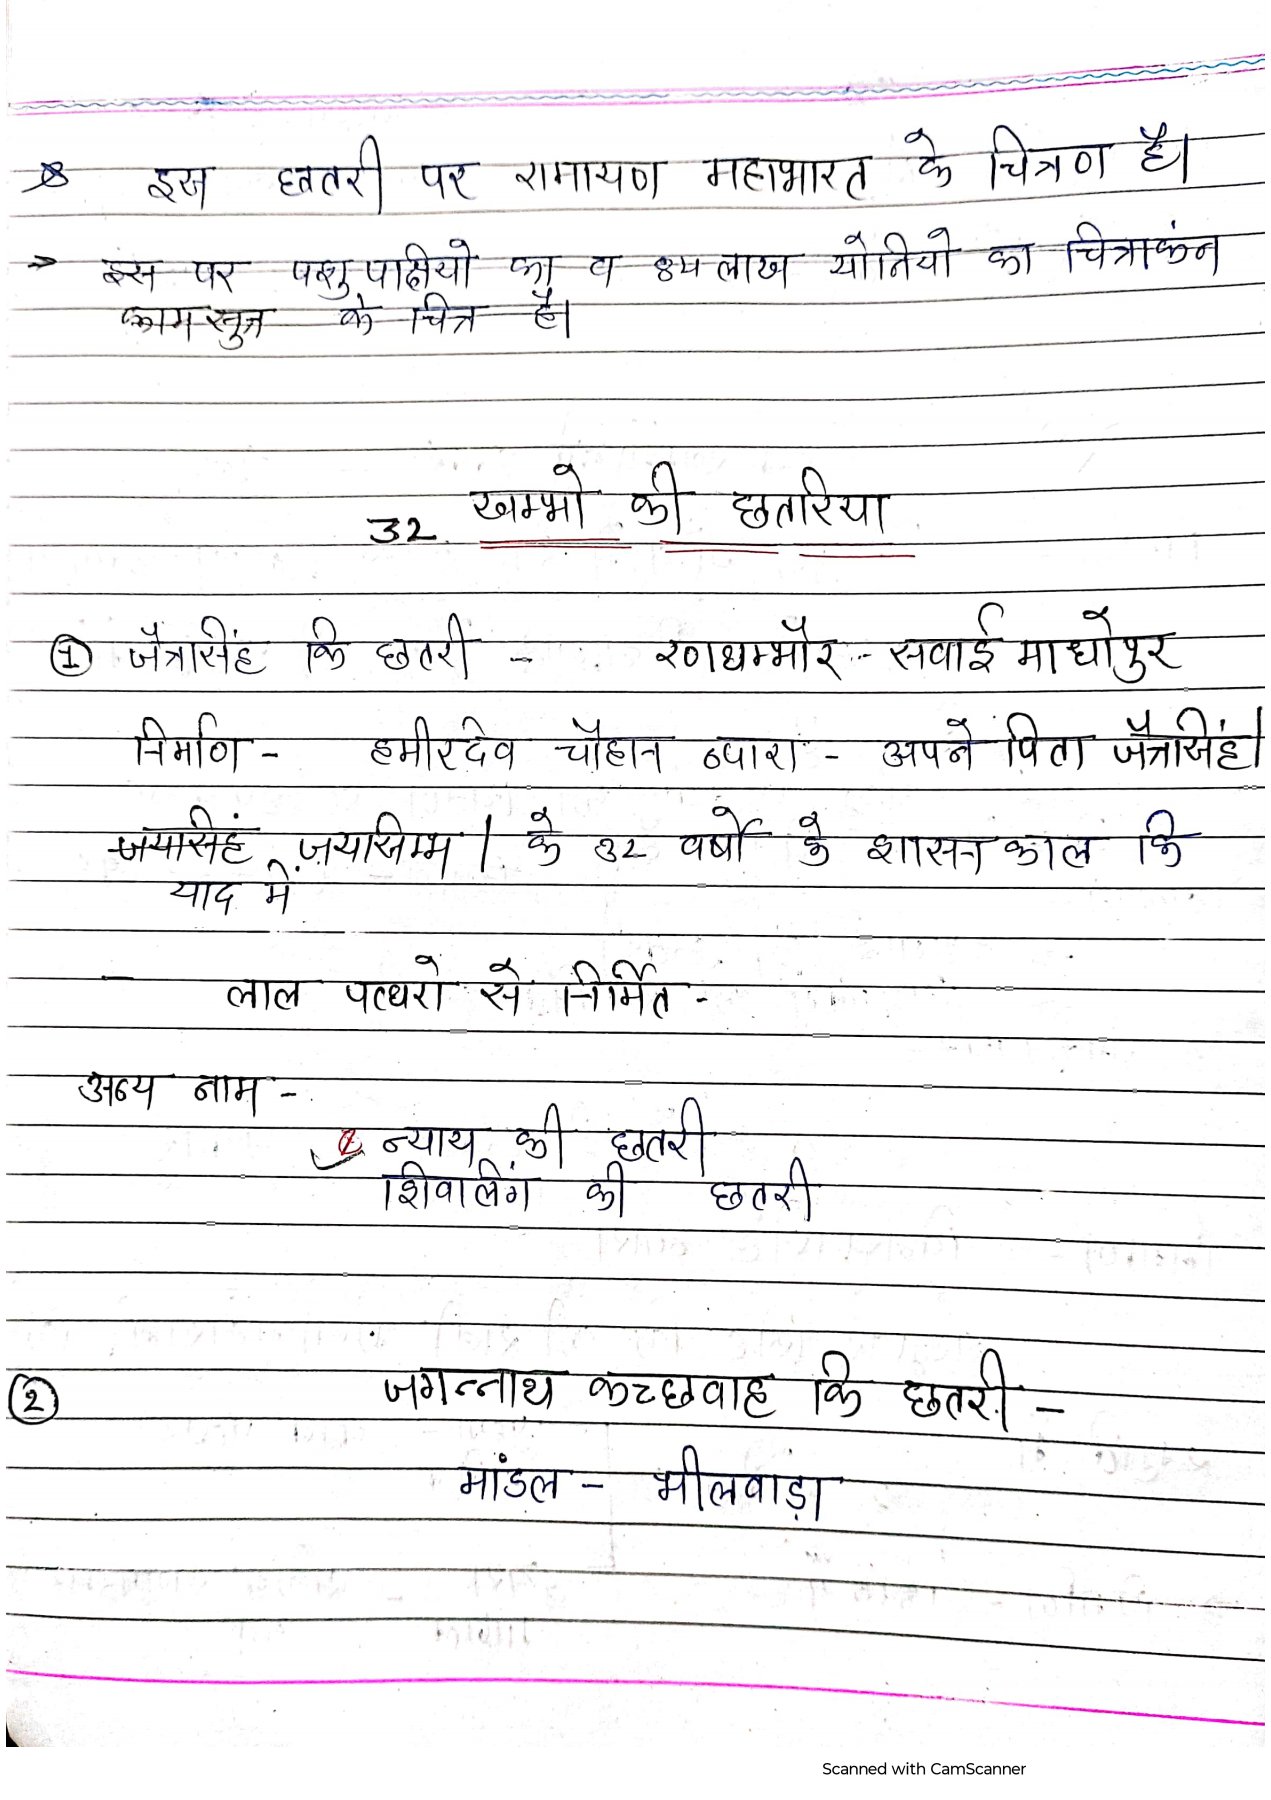 इस छतरी पर रामायण महाभारत के चित्रण है।
→ इस पर पशु पाक्षीयो का व ८४ लाख योनियो का चित्राकंन
कामसुत्र के चित्र है।
32 खम्भो की छतरिया
① जैत्रासिंह कि छतरी - रणथम्भौर - सवाई माधोपुर
निर्माण - हमीरदेव चौहान व्दारा - अपने पिता जैत्रसिंह।
जयासिहं जयसिम्भ / के ३२ वर्षो के शासन काल कि
याद में
- लाल पत्थरो से निर्मित -
अन्य नाम -
न्याय की छतरी
शिवालिंग की छतरी
② जगन्नाथ कच्छवाह कि छतरी -
मांडल - भीलवाड़ा
Scanned with CamScanner